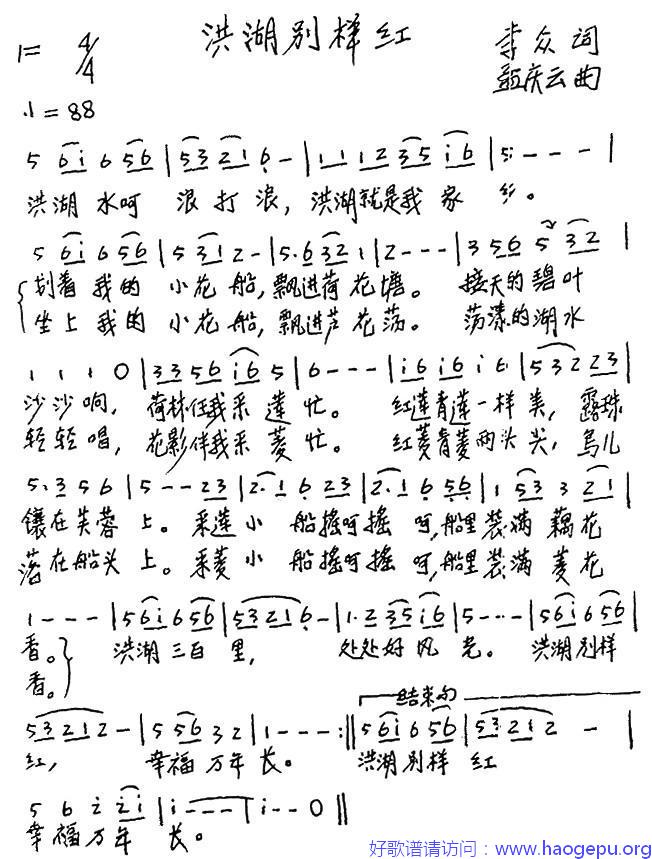 洪湖别样红
1= 4/4
李众 词
庆云曲
♩=88
5 6i 6 56 | 53 21 6 - | 1 1 12 35 i6 | 5· - - - |
洪湖 水呵 浪打浪，洪湖就是我家乡。
5 6i 6 56 | 5 31 2 - | 5·6 32 1 | 2 - - - | 3 56 5 32 |
划着我的小花船，飘进荷花塘。接天的碧叶
坐上我的小花船，飘进芦花荡。荡漾的湖水
1 1 1 0 | 33 56 i6 5 | 6 - - - | i6 i6 i 6 | 53 2 23 |
沙沙响，荷林任我采莲忙。红莲青莲一样美，露珠
轻轻唱，花影伴我采菱忙。红菱青菱两头尖，鸟儿
5·3 5 6 | 5 - - 23 | 2·1 6 23 | 2·1 6 56 | 1 53 3 21 |
镶在芙蓉上。采莲小船摇呵摇呵，船里装满藕花
落在船头上。采菱小船摇呵摇呵，船里装满菱花
1 - - - | 56i 6 56 | 5321 6 - | 1·2 35 i6 | 5 - - - | 56i 6 56 |
香。洪湖三百里，处处好风光。洪湖别样
香。
结束句
53 21 2 - | 5 56 3 2 | 1 - - - :|| 5 6i 6 56 | 53 21 2 - |
红，幸福万年长。洪湖别样红
5 6 2 2i | i - - - | i - - 0 ||
幸福万年长。
好歌谱请访问：www.haogepu.org